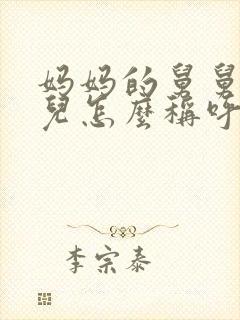 妈妈的舅舅
兒怎麼稱呼
李宗泰